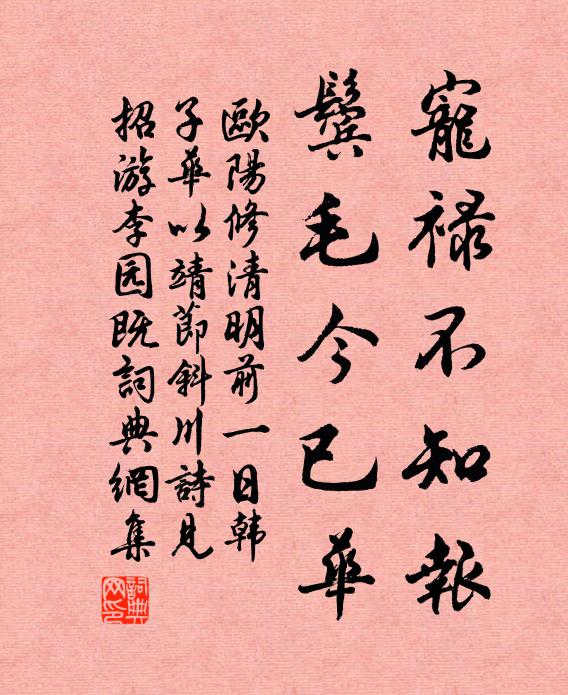 寵祿不知報
鬓毛今已華
歐陽修清明前一日韩
子華以靖節斜川詩見
招游李园既詞典網集
詞典網印